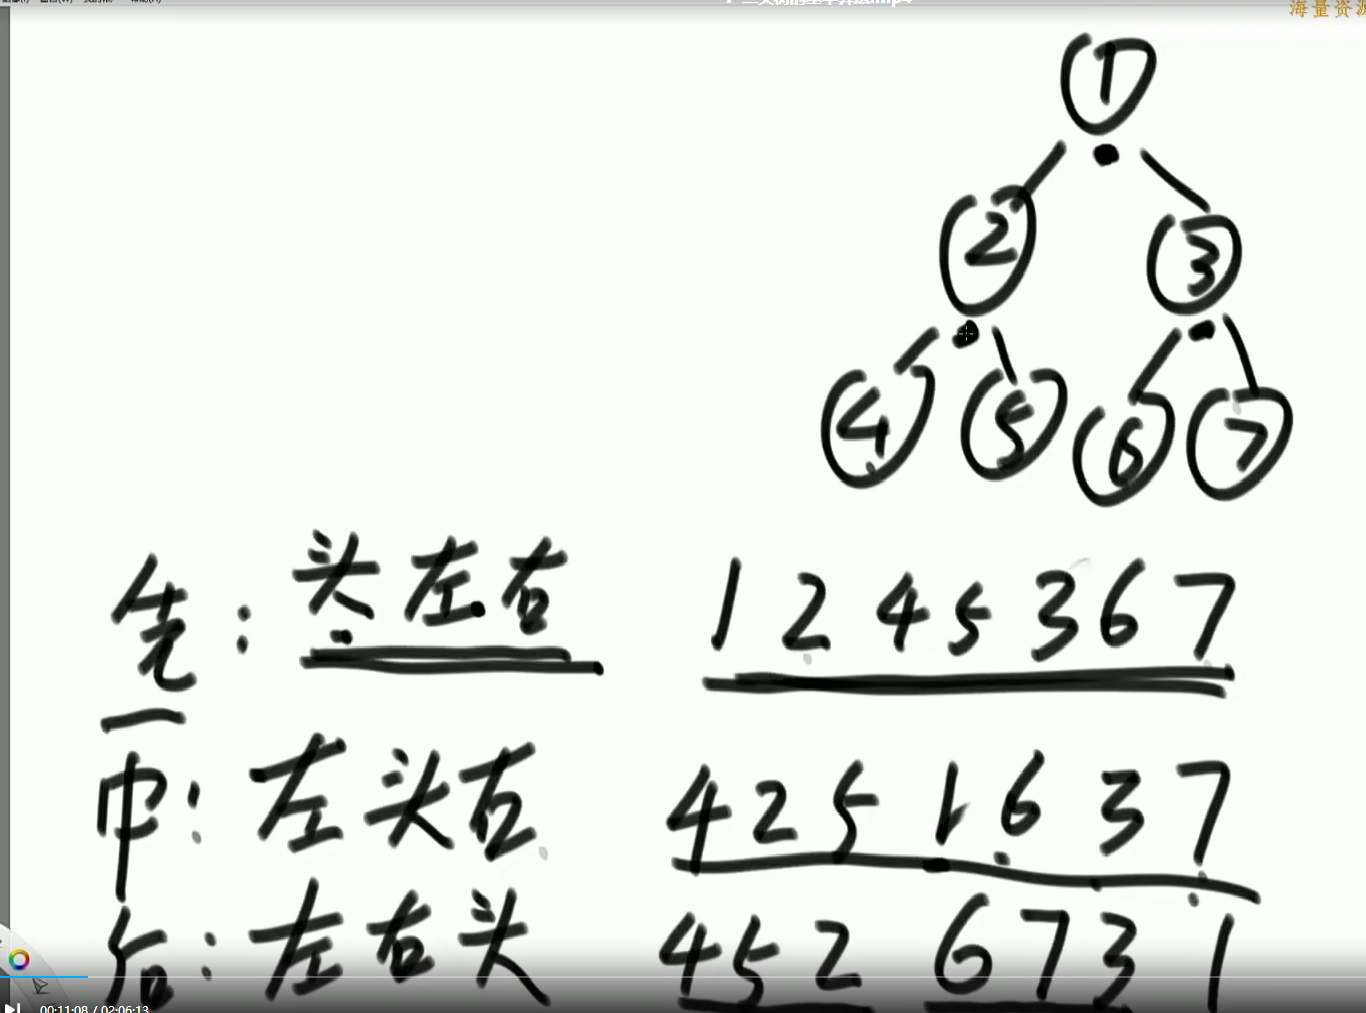 海量资源
1
2 3
4 5 6 7
先: 头左右 1 2 4 5 3 6 7
中: 左头右 4 2 5 1 6 3 7
后: 左右头 4 5 2 6 7 3 1
00:11:08 / 02:06:13